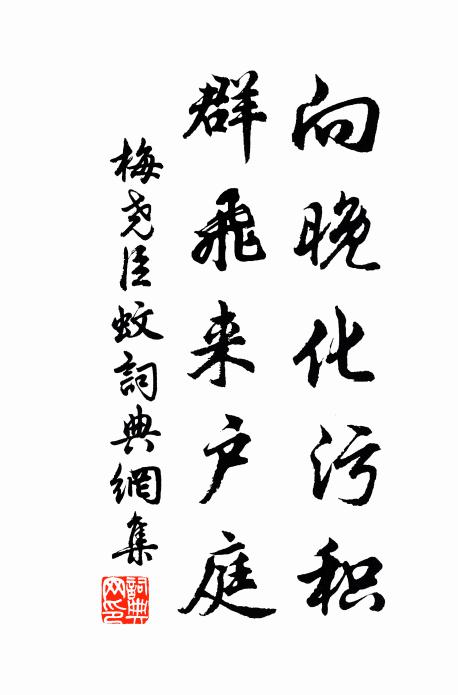 向晚化污积
群飞来户庭
梅尧臣蚊词典網集
詞典網印